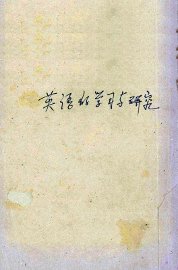 英语的学习与研究